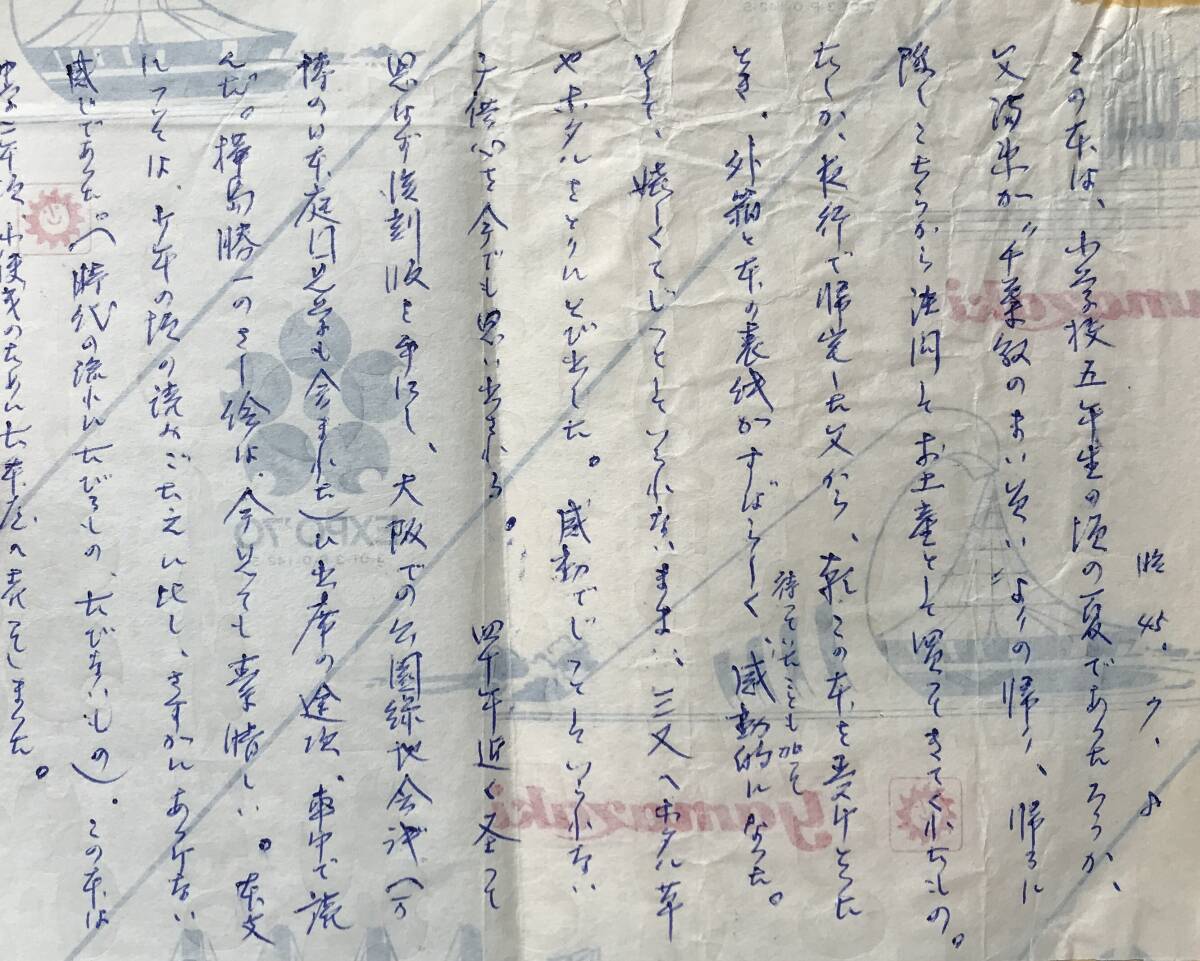 昭45.7.8
この本は、小学校五年生の頃の夏であったろうか、
父満洲か〝千葉敏のまい 〟よりの帰り、帰るに
際しこちらから注問してお土産として買ってきてくれたもの。
たしか、夜行で帰宅した父から、朝この本を受けとった
とき、外箱と本の表紙がすばらしく、感動的になった。
待っていたことも加って
そして、嬉しくてじっとしていられないまま、三又へホタル草
やホタルをとりにとび出した。感動でじっとしていられない
子供心を今でも思い出される。四十年近く経って
思はず復刻版を手にし、大阪での公園緑地会議(万
博の日本庭園見学も含まれた)に出席の途次、車中で読
んだ。樺島勝一のさし絵は、今見ても素晴しい。本文
については、少年の頃の読みごたえに比し、さすがにあっけない
感じであった。(時代の流れにたびるもの、たびないもの)。この本は
中学二年頃、小使銭のために古本店へ売ってしまった。
yamazaki
yamazaki
EXPO'70